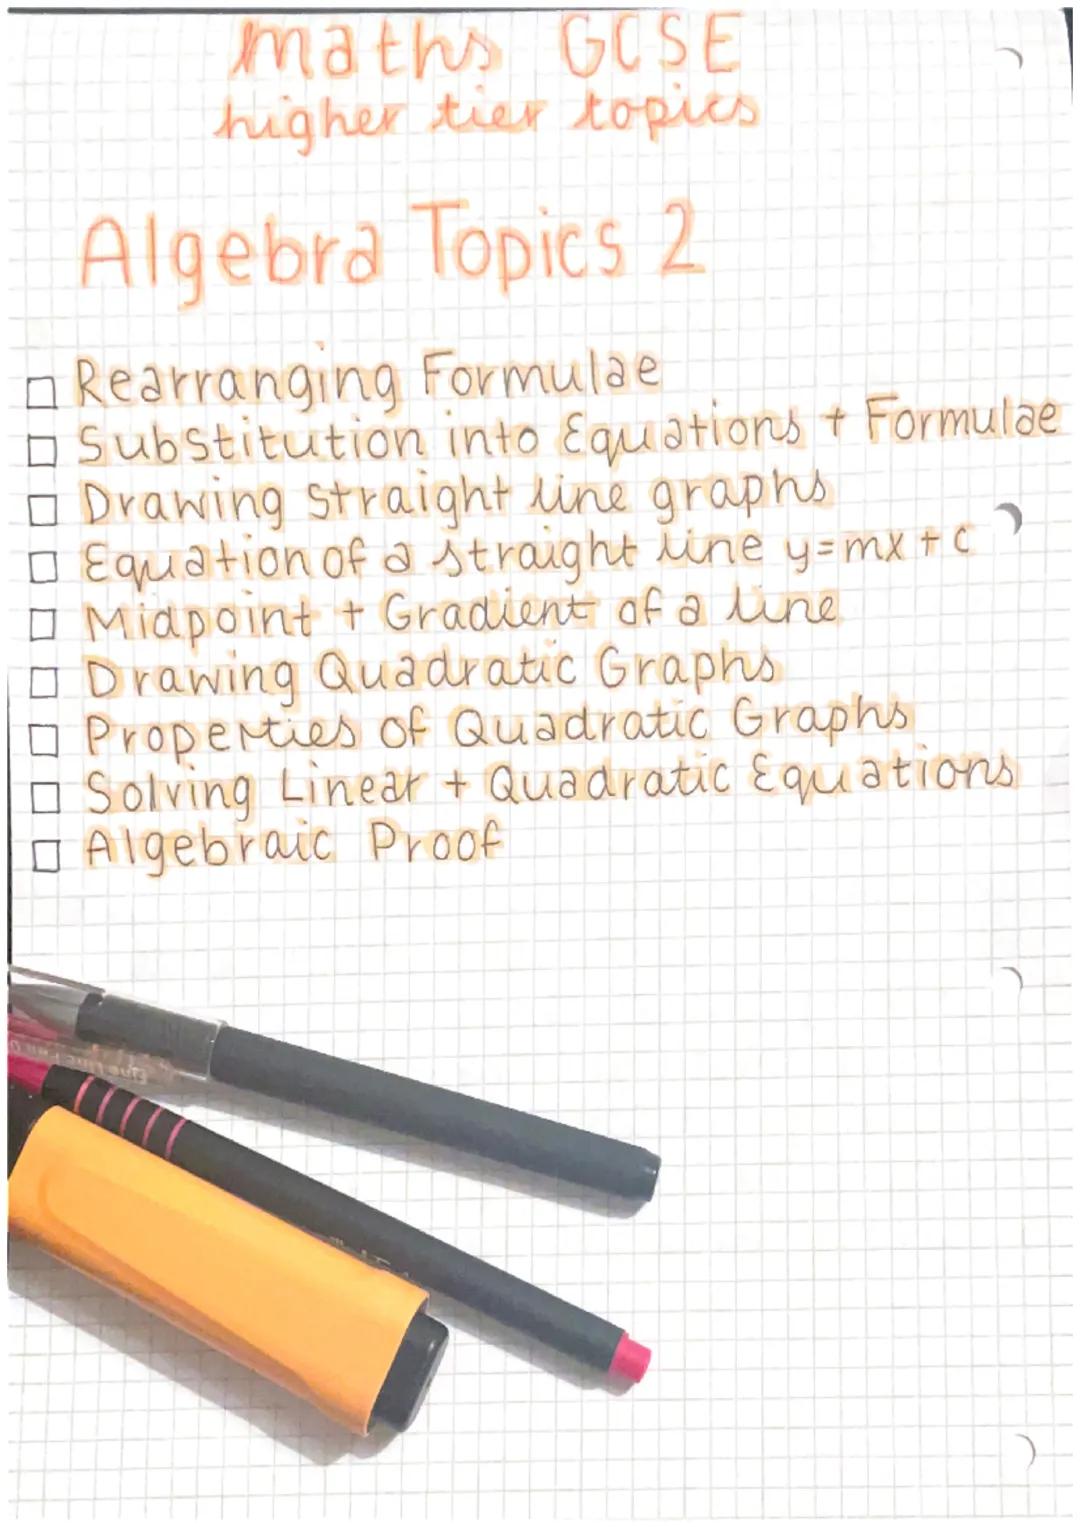 maths GCSE
higher tier topics
Algebra Topics 2
Rearranging Formulae
Substitution into Equations + Formulae
Drawing straight line graphs
Equation of a straight line y=mx+c
Midpoint + Gradient of a line
Drawing Quadratic Graphs
Properties of Quadratic Graphs
Solving Linear + Quadratic Equations
Algebraic Proof
Fine Line Pen